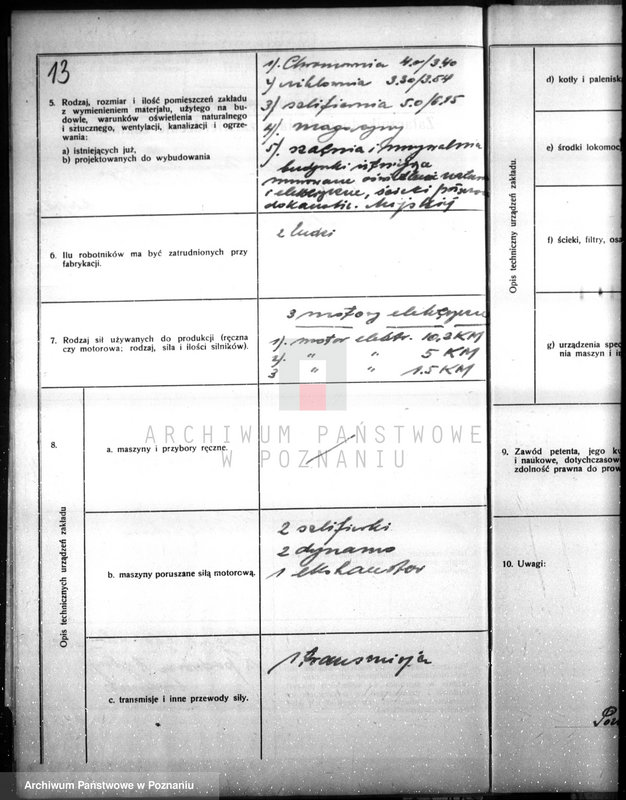 13
5. Rodzaj, rozmiar i ilość pomieszczeń zakładu
z wymienieniem materjału, użytego na bu-
dowie, warunków oświetlenia naturalnego
i sztucznego, wentylacji, kanalizacji i ogrze-
wania:
a) istniejących już,
b) projektowanych do wybudowania
1). Chromownia 4.0/3.40
2) niklownia 3.30/3.54
3) szlifiernia 5.0/6.15
4). magazyny
5). szatnia i umywalnia
budynki istnieją
murowane
i elektryczne, ścieki
do kanaliz. Miejskiej
6. Ilu robotników ma być zatrudnionych przy
fabrykacji.
2 ludzi
7. Rodzaj sił używanych do produkcji (ręczna
czy motorowa; rodzaj, siła i ilości silników).
3 motory elektryczne
1). motor elektr. 10,2 KM
2). " " 5 KM
3 " " 1.5 KM
8.
Opis technicznych urządzeń zakładu
a. maszyny i przybory ręczne.
b. maszyny poruszane siłą motorową.
2 szlifierki
2 dynamo
1 ekshaustor
c. transmisje i inne przewody siły.
1 transmisja
Opis techniczny urządzeń zakładu.
d) kotły i palenisk
e) środki lokomoc
f) ścieki, filtry, osa
g) urządzenia spec
nia maszyn i in
9. Zawód petenta, jego kw
i naukowe, dotychczasow
zdolność prawna do prow
10. Uwagi:
ARCHIWUM PAŃSTWOWE
W POZNANIU
Archiwum Państwowe w Poznaniu